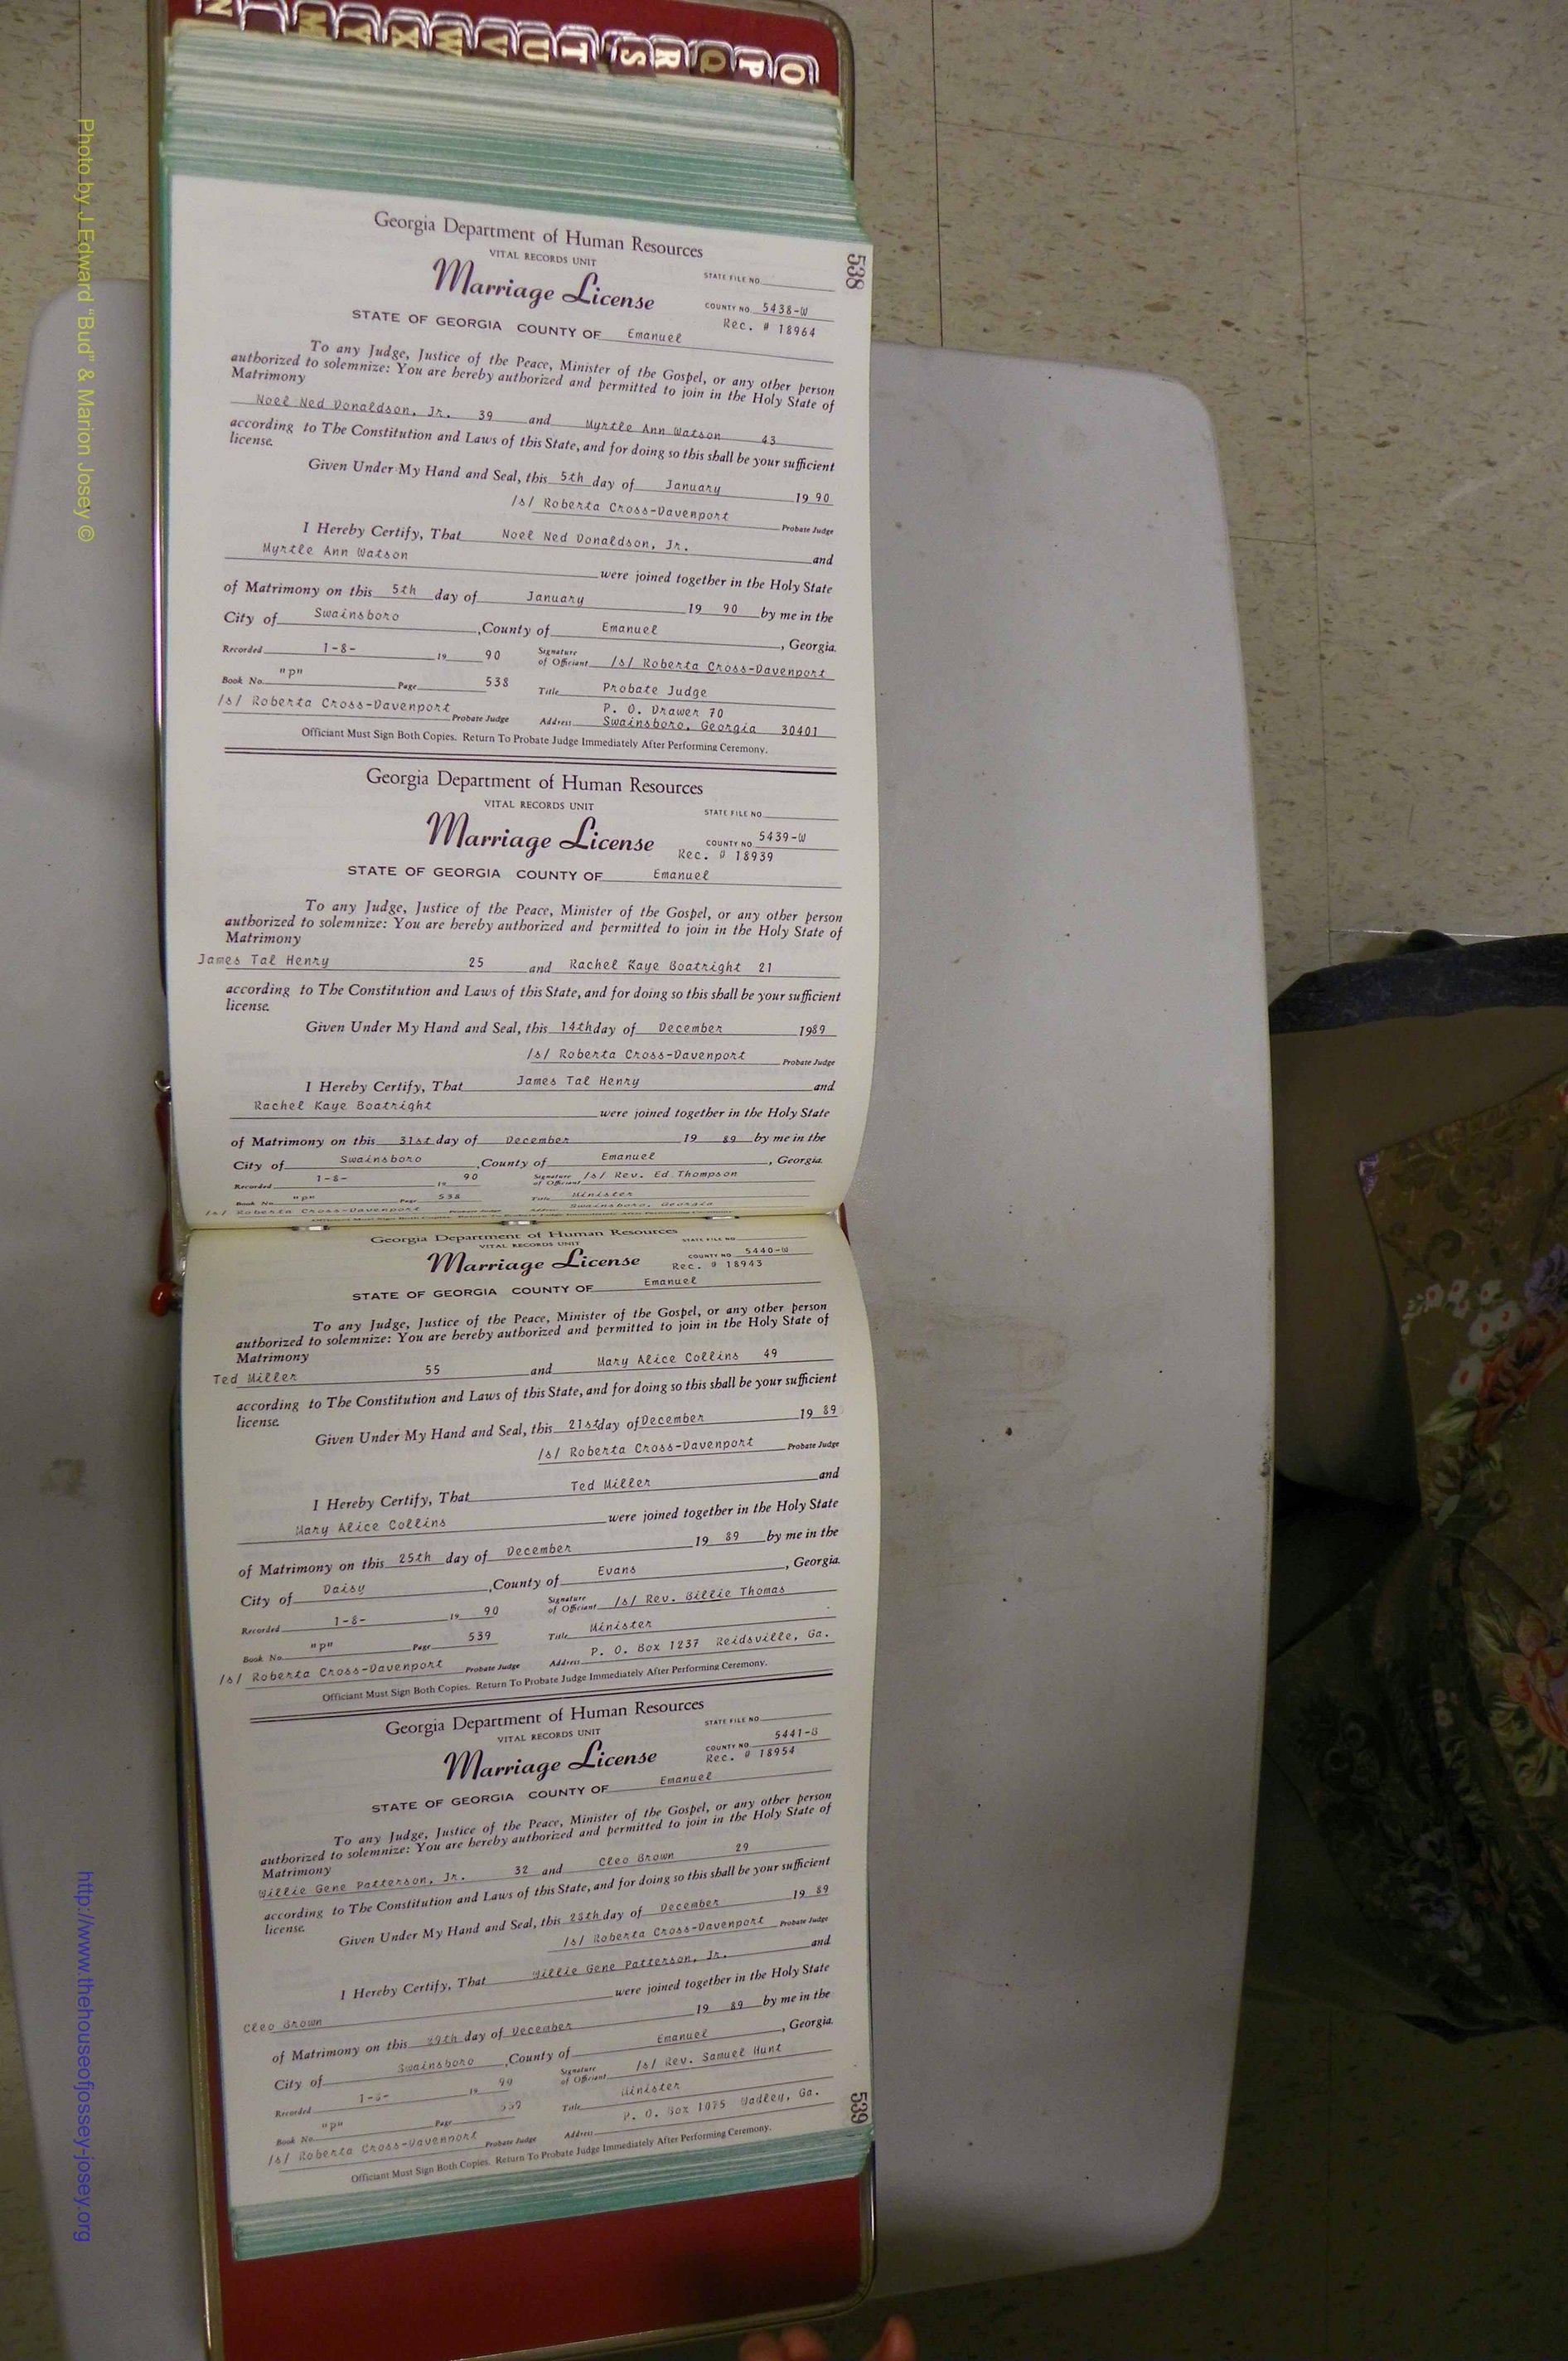 N M Y X W V U T S R Q P O
538
Georgia Department of Human Resources
VITAL RECORDS UNIT
STATE FILE NO.
Marriage License
COUNTY NO. 5438-W
Rec. # 18964
STATE OF GEORGIA COUNTY OF Emanuel
To any Judge, Justice of the Peace, Minister of the Gospel, or any other person
authorized to solemnize: You are hereby authorized and permitted to join in the Holy State of
Matrimony
Noel Ned Donaldson, Jr. 39 and Myrtle Ann Watson 43
according to The Constitution and Laws of this State, and for doing so this shall be your sufficient
license.
Given Under My Hand and Seal, this 5th day of January 19 90
/s/ Roberta Cross-Davenport Probate Judge
I Hereby Certify, That Noel Ned Donaldson, Jr. and
Myrtle Ann Watson were joined together in the Holy State
of Matrimony on this 5th day of January 19 90 by me in the
City of Swainsboro, County of Emanuel, Georgia.
Recorded 1-8- 19 90 Signature of Officiant /s/ Roberta Cross-Davenport
Book No. "p" Page 538 Title Probate Judge
/s/ Roberta Cross-Davenport Probate Judge Address P. O. Drawer 70
Swainsboro, Georgia 30401
Officiant Must Sign Both Copies. Return To Probate Judge Immediately After Performing Ceremony.
Georgia Department of Human Resources
VITAL RECORDS UNIT
STATE FILE NO.
Marriage License
COUNTY NO. 5439-W
Rec. # 18939
STATE OF GEORGIA COUNTY OF Emanuel
To any Judge, Justice of the Peace, Minister of the Gospel, or any other person
authorized to solemnize: You are hereby authorized and permitted to join in the Holy State of
Matrimony
James Tal Henry 25 and Rachel Kaye Boatright 21
according to The Constitution and Laws of this State, and for doing so this shall be your sufficient
license.
Given Under My Hand and Seal, this 14th day of December 1989
/s/ Roberta Cross-Davenport Probate Judge
I Hereby Certify, That James Tal Henry and
Rachel Kaye Boatright were joined together in the Holy State
of Matrimony on this 31st day of December 19 89 by me in the
City of Swainsboro, County of Emanuel, Georgia.
Recorded 1-8- 19 90 Signature of Officiant /s/ Rev. Ed Thompson
Book No. "p" Page 538 Title Minister
/s/ Roberta Cross-Davenport Probate Judge Address Swainsboro, Georgia
Officiant Must Sign Both Copies. Return To Probate Judge Immediately After Performing Ceremony.
Georgia Department of Human Resources
VITAL RECORDS UNIT
STATE FILE NO.
Marriage License
COUNTY NO. 5440-W
Rec. # 18943
STATE OF GEORGIA COUNTY OF Emanuel
To any Judge, Justice of the Peace, Minister of the Gospel, or any other person
authorized to solemnize: You are hereby authorized and permitted to join in the Holy State of
Matrimony
Ted Miller 55 and Mary Alice Collins 49
according to The Constitution and Laws of this State, and for doing so this shall be your sufficient
license.
Given Under My Hand and Seal, this 21st day of December 19 89
/s/ Roberta Cross-Davenport Probate Judge
I Hereby Certify, That Ted Miller and
Mary Alice Collins were joined together in the Holy State
of Matrimony on this 25th day of December 19 89 by me in the
City of Daisy, County of Evans, Georgia.
Recorded 1-8- 19 90 Signature of Officiant /s/ Rev. Billie Thomas
Book No. "p" Page 539 Title Minister
/s/ Roberta Cross-Davenport Probate Judge Address P. O. Box 1237 Reidsville, Ga.
Officiant Must Sign Both Copies. Return To Probate Judge Immediately After Performing Ceremony.
Georgia Department of Human Resources
VITAL RECORDS UNIT
STATE FILE NO.
Marriage License
COUNTY NO. 5441-B
Rec. # 18954
STATE OF GEORGIA COUNTY OF Emanuel
To any Judge, Justice of the Peace, Minister of the Gospel, or any other person
authorized to solemnize: You are hereby authorized and permitted to join in the Holy State of
Matrimony
Willie Gene Patterson, Jr. 32 and Cleo Brown 29
according to The Constitution and Laws of this State, and for doing so this shall be your sufficient
license.
Given Under My Hand and Seal, this 28th day of December 19 89
/s/ Roberta Cross-Davenport Probate Judge
I Hereby Certify, That Willie Gene Patterson, Jr. and
Cleo Brown were joined together in the Holy State
of Matrimony on this 29th day of December 19 89 by me in the
City of Swainsboro, County of Emanuel, Georgia.
Recorded 1-8- 19 90 Signature of Officiant /s/ Rev. Samuel Hunt
Book No. "p" Page 539 Title Minister
/s/ Roberta Cross-Davenport Probate Judge Address P. O. Box 1075 Wadley, Ga.
Officiant Must Sign Both Copies. Return To Probate Judge Immediately After Performing Ceremony.
539
Photo by J Edward "Bud" & Marion Josey ©
http://www.thehouseofjossey-josey.org